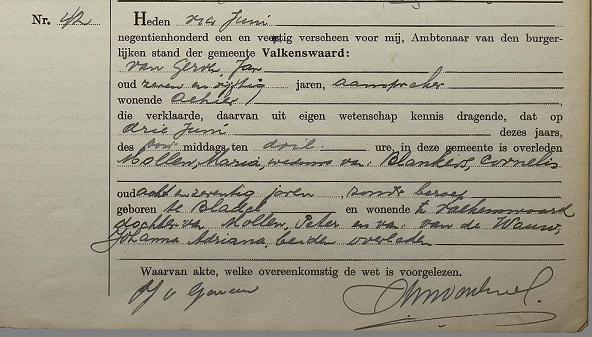 Nr. 42 Heden vier Juni
negentienhonderd een en veertig verscheen voor mij, Ambtenaar van den burger-
lijken stand der gemeente Valkenswaard:
van Gerven, Jan
oud zeven en vijftig jaren, aanspreker
wonende alhier
die verklaarde, daarvan uit eigen wetenschap kennis dragende, dat op
drie Juni dezes jaars,
des voor middags ten drie ure, in deze gemeente is overleden
Mollen, Maria, weduwe van Blankers, Cornelis
oud acht en zeventig jaren, zonder beroep
geboren te Bladel en wonende te Valkenswaard
dochter van Mollen, Peter en van van de Wauw,
Johanna Adriana, beiden overleden
Waarvan akte, welke overeenkomstig de wet is voorgelezen.